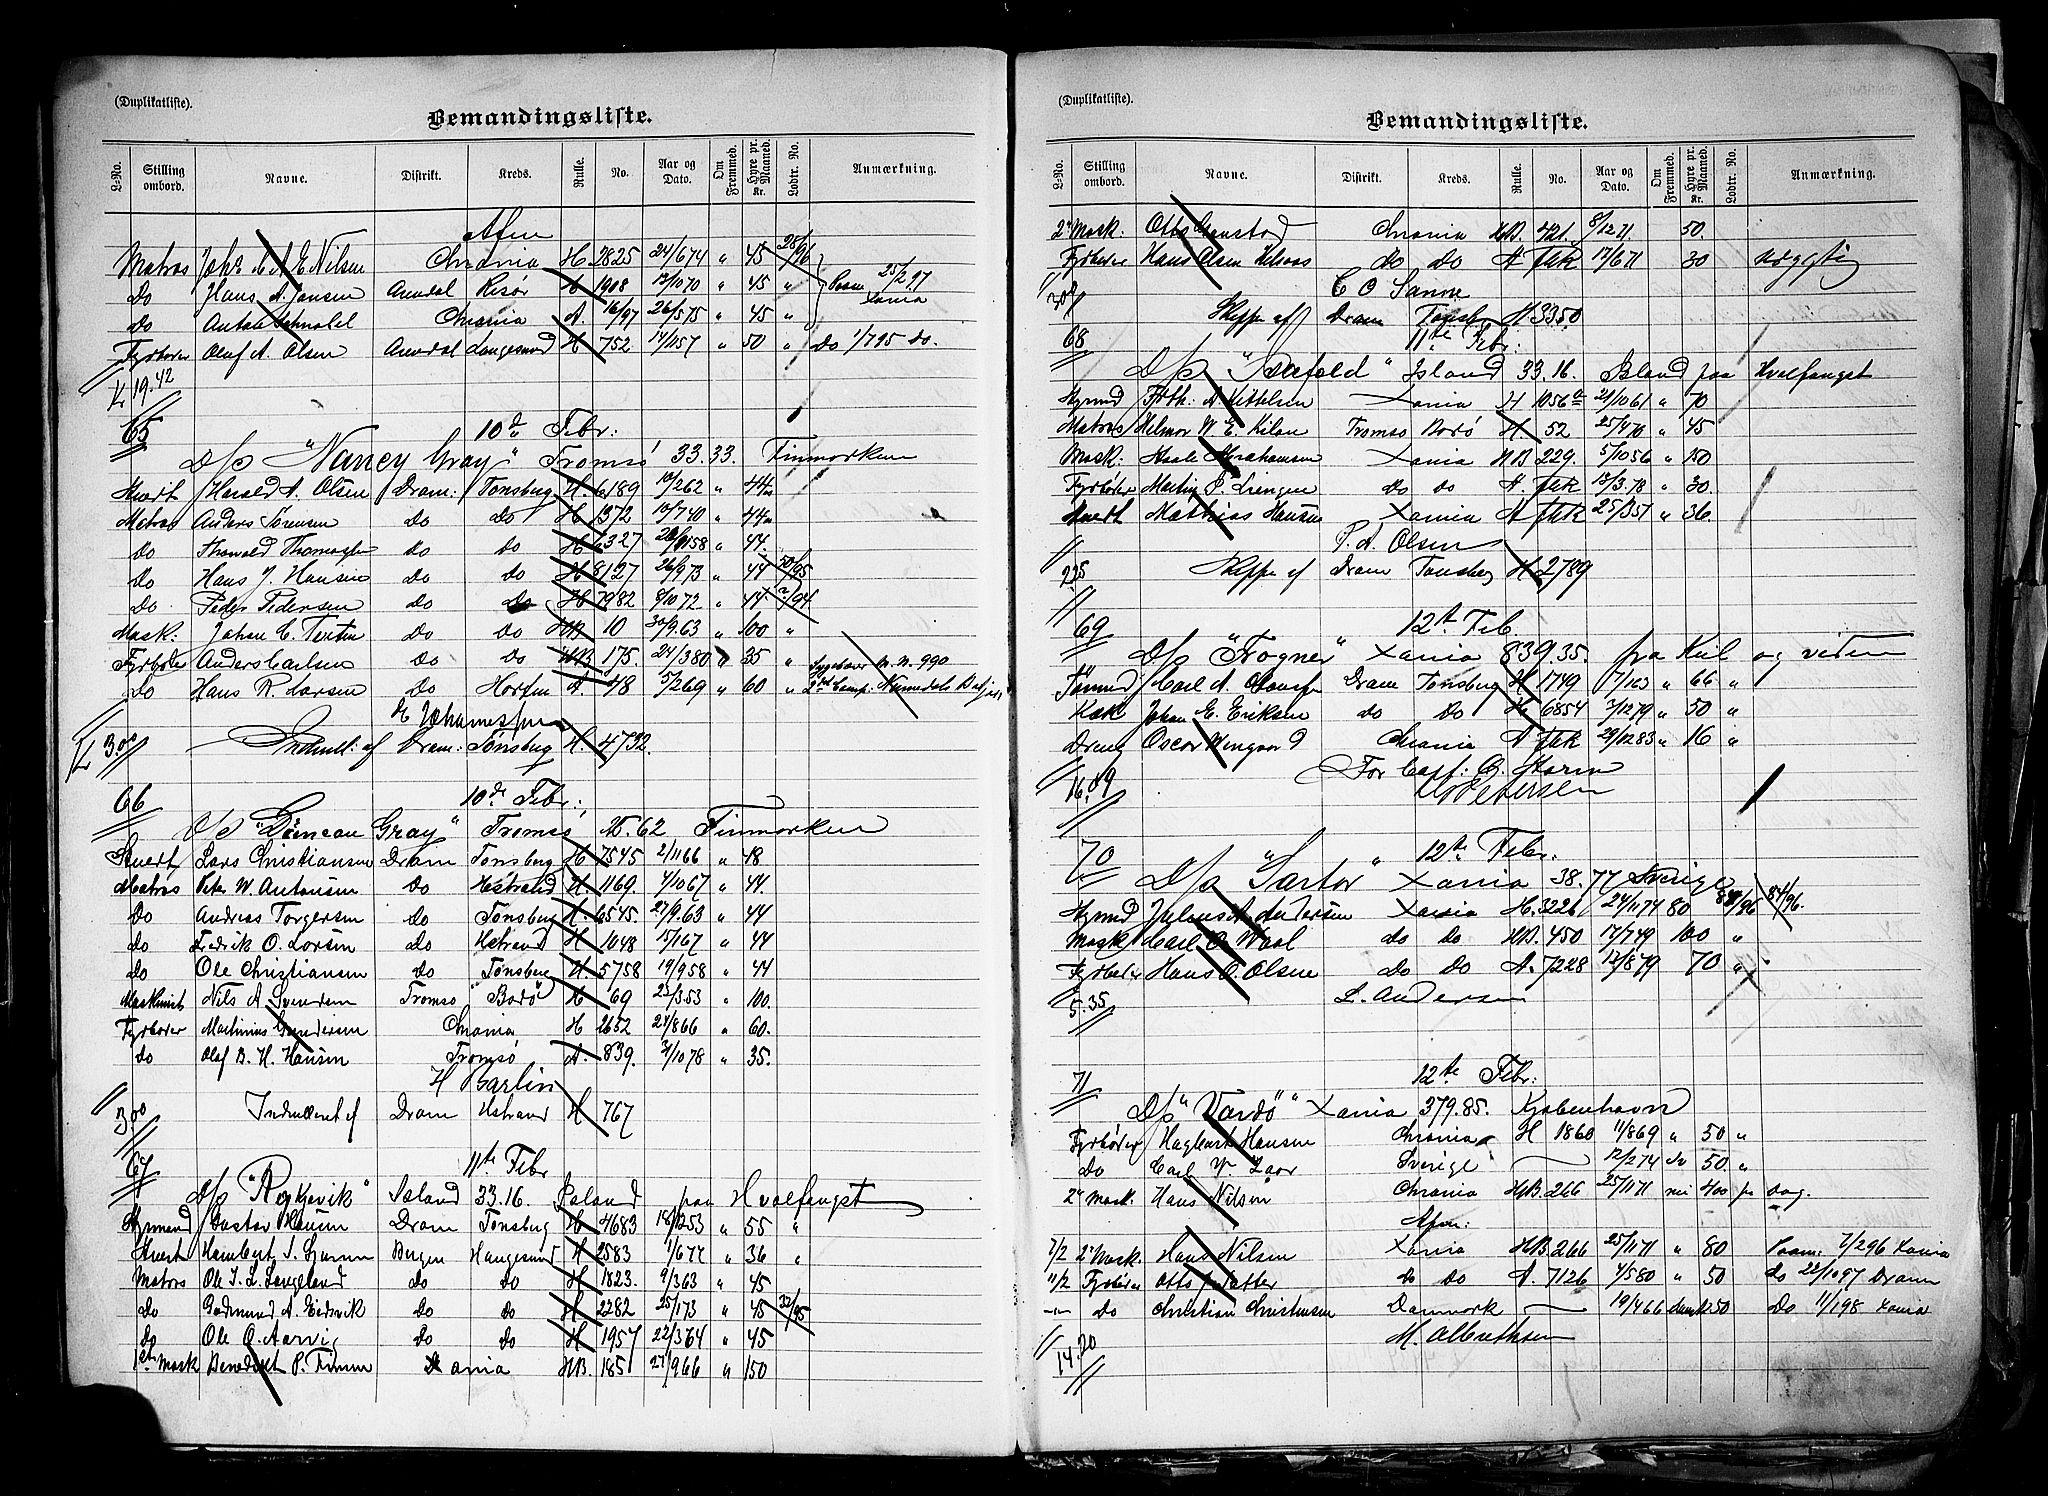 (Duplikatliste).
Bemandingsliste.
L-No. Stilling ombord. Navne. Distrikt. Kreds. Rulle. No. Aar og Dato. Om Fremmed. Hyre pr. Maaned. Kr. Lodtr. No. Anmærkning.
Afm
Matros Nilsen Chrania H. 2825 24/6 74 " 45 28/96
Do Hans A. Jansen Arendal Risør H 1908 10 70 " 45 " 25/2 97
Do Anton Schnobel Chrania A. 16/97 26/5 75 " 45 " Xania
Fyrbøter Olaf A. Olsen Arendal Langesund H 752 57 " 50 " Do 1/7 95 do.
Kr 19.42
65
10de Febr:
D/S "Nancy Gray" Tromsø 33.33. Finmarken
Stuert Harald A. Olsen Dram: Tønsberg H. 6189 2 62 " 44
Matros Anders Sørensen Do Do H 1372 7 40 " 44
Do Thorvald Do Do H 6327 58 " 44
Do Hans J. Hansen Do Do H 8127 26/9 73 " 44 50/95
Do Peder Pedersen Do Do H 7982 8/10 72 " 44 94
Mask: Johan C. Do Do HB 10 30/9 63 " 100 "
Fyrbøter Anders Carlsen Do Do HB 175. 24/3 80 " 35 " N. N. 990
Do Hans R. Larsen Do Horten A 48 5/2 69 " 60 "
E Johannessen
Kr 3.00 Indrull: af Dram: Tønsberg H. 4732.
66
10de Febr:
D/S "Duncan Gray" Tromsø 15.62 Finmarken
Stuert Lars Christiansen Dram Tønsberg H 7545 2/11 66 " 48
Matros Peter W Antonsen Do Hstrand H. 1169. 4/10 67 " 44
Do Andreas Torgersen do Tønsberg H. 6545. 27/9 63 " 44
Do Fredrik O. Larsen do Hstrand H 1048 15/1 67 " 44
Do Ole Christiansen do Tønsberg H 5758 19/9 58 " 44
Maskinist Nils A Svendsen Tromsø Bodø H 69 23/3 53 " 100.
Fyrbøter Martinius Gundersen Chrania H 2652 24/8 66 " 60.
do Olaf B. H. Hansen Tromsø A. 839. 31/10 78 " 35.
H Barlin
3.00 Indrulleret af Dram Hstrand H 767
67
11te Febr
D/S "Reykjavik" Island 33.16. Island paa Hvalfangst
Styrmand Gustav Hansen Dram Tønsberg H 4683 18/12 53 " 55 "
Stuert Hambert S. Bergen Haugesund H 2583 1/6 77 " 36 "
Matros Ole T. L. Langeland do do H 1823. 9/3 63 " 45
Do Gudmund A. Eidsvik do do H 2282 25/1 73 " 45 32/95
Do Ole O. Aarvig Do do H 1957 22/3 64 " 45
1ste Mask Benedikt P. Xania HB. 185 27/9 66 " 150
(Duplikatliste).
Bemandingsliste.
L-No. Stilling ombord. Navne. Distrikt. Kreds. Rulle. No. Aar og Dato. Om Fremmed. Hyre pr. Maaned. Kr. Lodtr. No. Anmærkning.
2n Mask: Otto Chrania HB. 421. 8/12 71. 50.
Fyrbøter Hans Olsen do do A fak 17/6 71 30 nægtig
C O Sanne
30.9 Skippr af Dram Tønsb H 3350
68
11te Febr:
D/S " " Island 33.16. Island paa Hvalfangst
Styrmd Fdth: A Kittelsen Xania H 1056a 21/10 61 " 70
Matros Helmer W. E. Kilan Tromsø Bodø H. 52 25/4 70 " 45
Mask: Abrahamsen Xania HB 229. 5/10 56 " 150
Fyrbøter Martin P. do do A. fak 18/3 78 " 30.
Stuert Mathias Hansen Xania A fak 25/3 51 " 36.
P. A. Olsen
2.25 Skippr af Dram Tønsberg H 2789
69
12te Feb
D/S "Frogner" Xania 839.35. fra Kiel og viden
Tømmd Carl A. Dram Tønsberg H 1749 1 63 " 66 "
Kok Johan E. Eriksen do Do H 6854 7/12 79 " 50 "
Dreng Oscar Wingaard Chrania A fak 29/12 83 " 16 "
For Capt: C. Storm
16.09 Pedersen
70
12te Febr.
D/S "Sartor" Xania 38.77 Sverige
Styrmd Andersen Xania H. 3226 24/11 74 80 84/96 84/96.
Mask Carl O Waal do do HB. 450 17/7 49 100 "
Fyrbøter Hans O. Olsen do Do A. 7228 12/8 79 70 "
L. Andersen
5.35
71
12te Febr.
D/S "Vardø" Xania 379.85. Kjøbenhavn
Fyrbøter Hagbart Hansen Chrania H 1860 11/8 69 " 50 "
Do Carl Sverige 12/2 74 do 50 "
2n Mask. Hans Nilsen Chrania HB. 266 25/11 71 nei 4.00 pr Dag.
Afm:
7/2 2n Mask. Hans Nilsen Xania HB. 266 25/11 71 " 80 Paam: 7/2 96 Xania
11/2 Fyrbøter Otto do do A. 7126 4/5 80 " 50 do 22/10 97 Dram
Do Christian Christensen Danmark 19/4 66 dansk 50 Do 11/1 98 Xania
M. Albrethsen
14.20